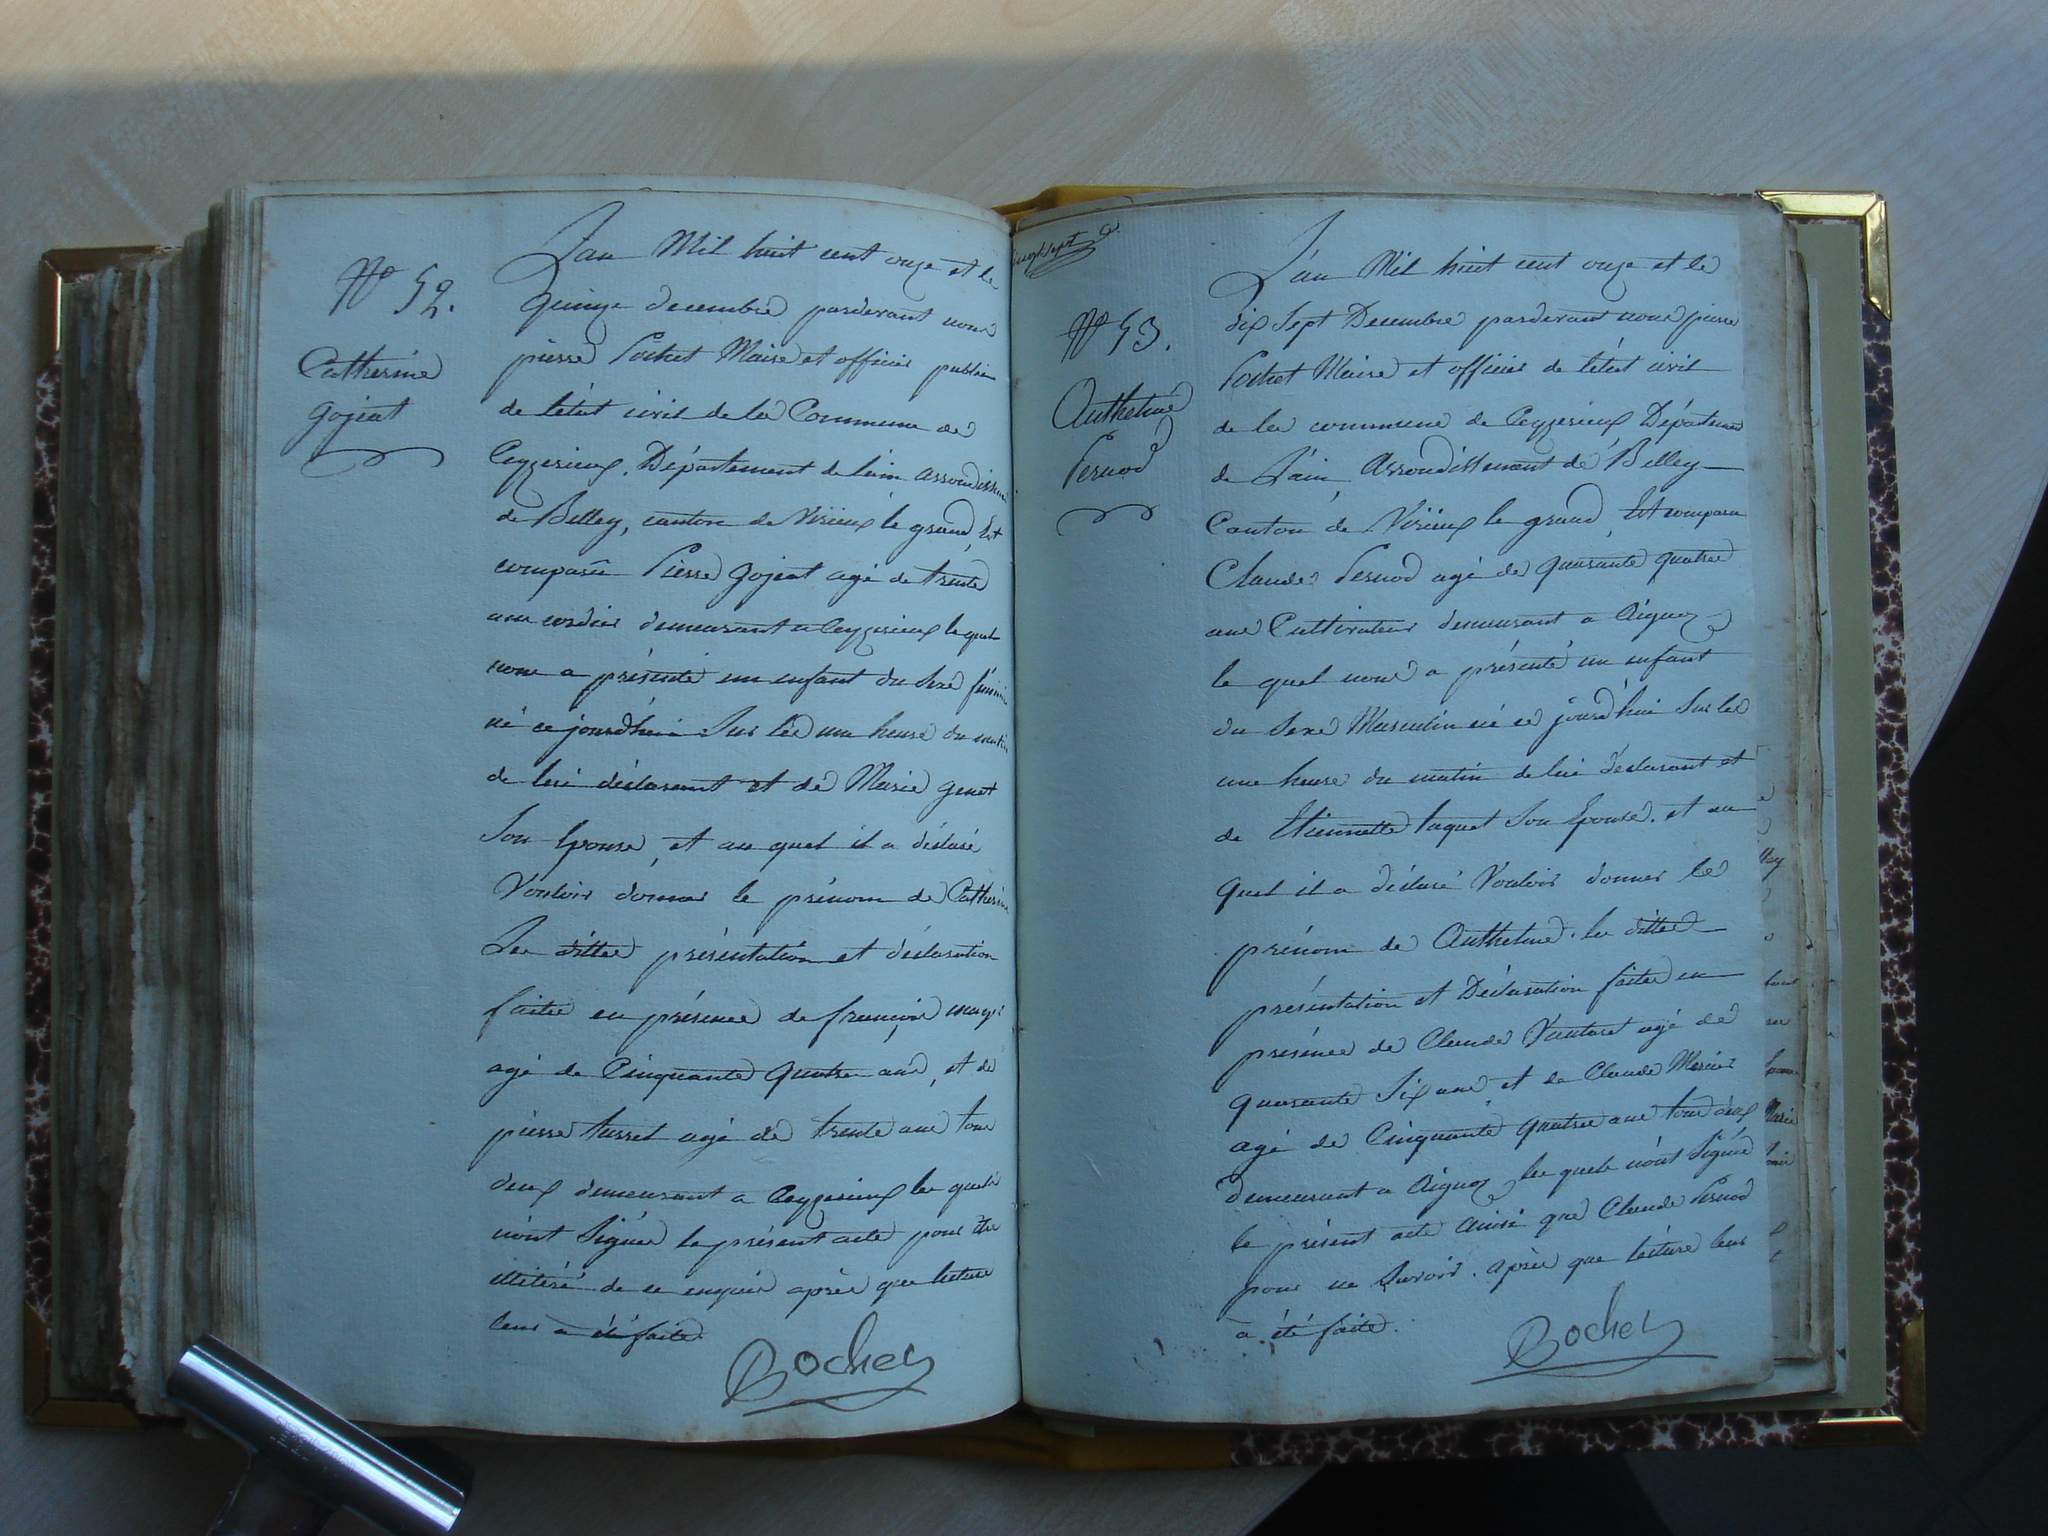 N° 52.
Catherine
Gojeat
L'an Mil huit cent onze et le
quinze decembre pardevant nous
pierre Pochet Maire et officier public
de l'état civil de la Commune de
Ceyzerieux, Département de l'ain arrondissem
de Belley, canton de Virieux le grand, Est
comparu Pierre Gojeat agé de trente
ans cordier demeurant a Ceyzerieux le quel
nous a présenté un enfant du sexe féminin
né ce jourd'hui sur les une heure du matin
de lui déclarant et de Marie genet
son Epouse, et au quel il a déclaré
Vouloir donner le prénom de Catherine
Les dittes présentation et déclaration
faites en présence de françois
agé de Cinquante quatre ans, et de
pierre agé de trente ans tous
deux demeurant a Ceyzerieux les quels
n'ont signés le présent acte pour être
illitéré de ce enquis après que lecture
leur a été faite.
Bochet
N° 53.
Anthelme
Pernod
L'an Mil huit cent onze et le
dix sept Decembre pardevant nous pierre
Pochet Maire et officier de l'état civil
de la commune de Ceyzerieux Département
de l'ain, Arrondissement de Belley
Canton de Virieux le grand, Est comparu
Claude Pernod agé de quarante quatre
ans Cultivateur demeurant a Aignoz
le quel nous a présenté un enfant
du sexe Masculin né ce jourd'hui sur les
une heure du matin de lui déclarant et
de Etiennette son Epouse, et au
quel il a déclaré Vouloir donner le
prénom de Anthelme. les dittes
présentation et Déclaration faites en
présence de Claude Vautaret agé de
quarante six ans et de Claude Mercier
agé de Cinquante quatre ans tous deux
demeurant a Aignoz les quels n'ont signés
le présent acte ainsi que Claude Pernod
pour ne savoir. après que lecture leur
a été faite.
Bochet